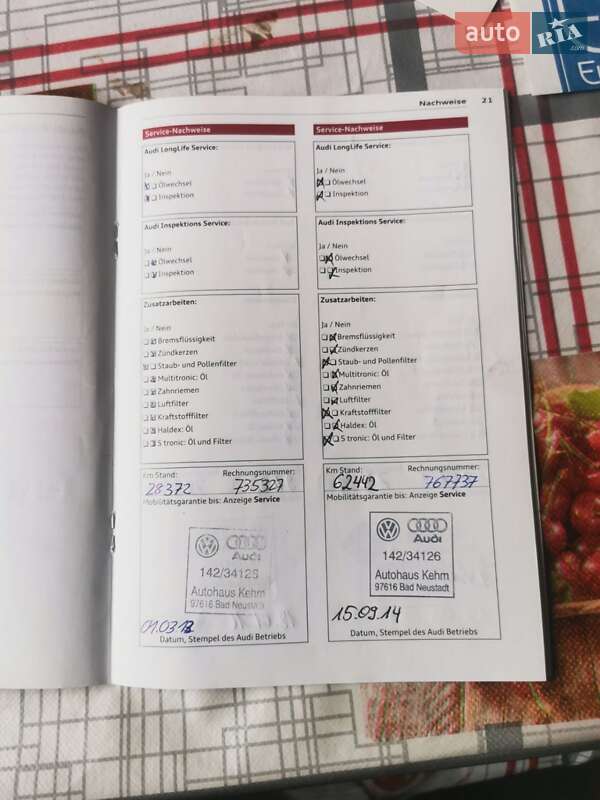 auto RIA .com
Nachweise 21
Service-Nachweise
Audi LongLife Service:
Ja / Nein
Ölwechsel
Inspektion
Audi Inspektions Service:
Ja / Nein
Ölwechsel
Inspektion
Zusatzarbeiten:
Ja / Nein
Bremsflüssigkeit
Zündkerzen
Staub- und Pollenfilter
Multitronic: Öl
Zahnriemen
Luftfilter
Kraftstofffilter
Haldex: Öl
S tronic: Öl und Filter
Km Stand: Rechnungsnummer:
28372 735327
Mobilitätsgarantie bis: Anzeige Service
Audi
142/34126
Autohaus Kehm
97616 Bad Neustadt
Datum, Stempel des Audi Betriebs
Service-Nachweise
Audi LongLife Service:
Ja / Nein
Ölwechsel
Inspektion
Audi Inspektions Service:
Ja / Nein
Ölwechsel
Inspektion
Zusatzarbeiten:
Ja / Nein
Bremsflüssigkeit
Zündkerzen
Staub- und Pollenfilter
Multitronic: Öl
Zahnriemen
Luftfilter
Kraftstofffilter
Haldex: Öl
S tronic: Öl und Filter
Km Stand: Rechnungsnummer:
62442 767737
Mobilitätsgarantie bis: Anzeige Service
Audi
142/34126
Autohaus Kehm
97616 Bad Neustadt
15.09.14
Datum, Stempel des Audi Betriebs